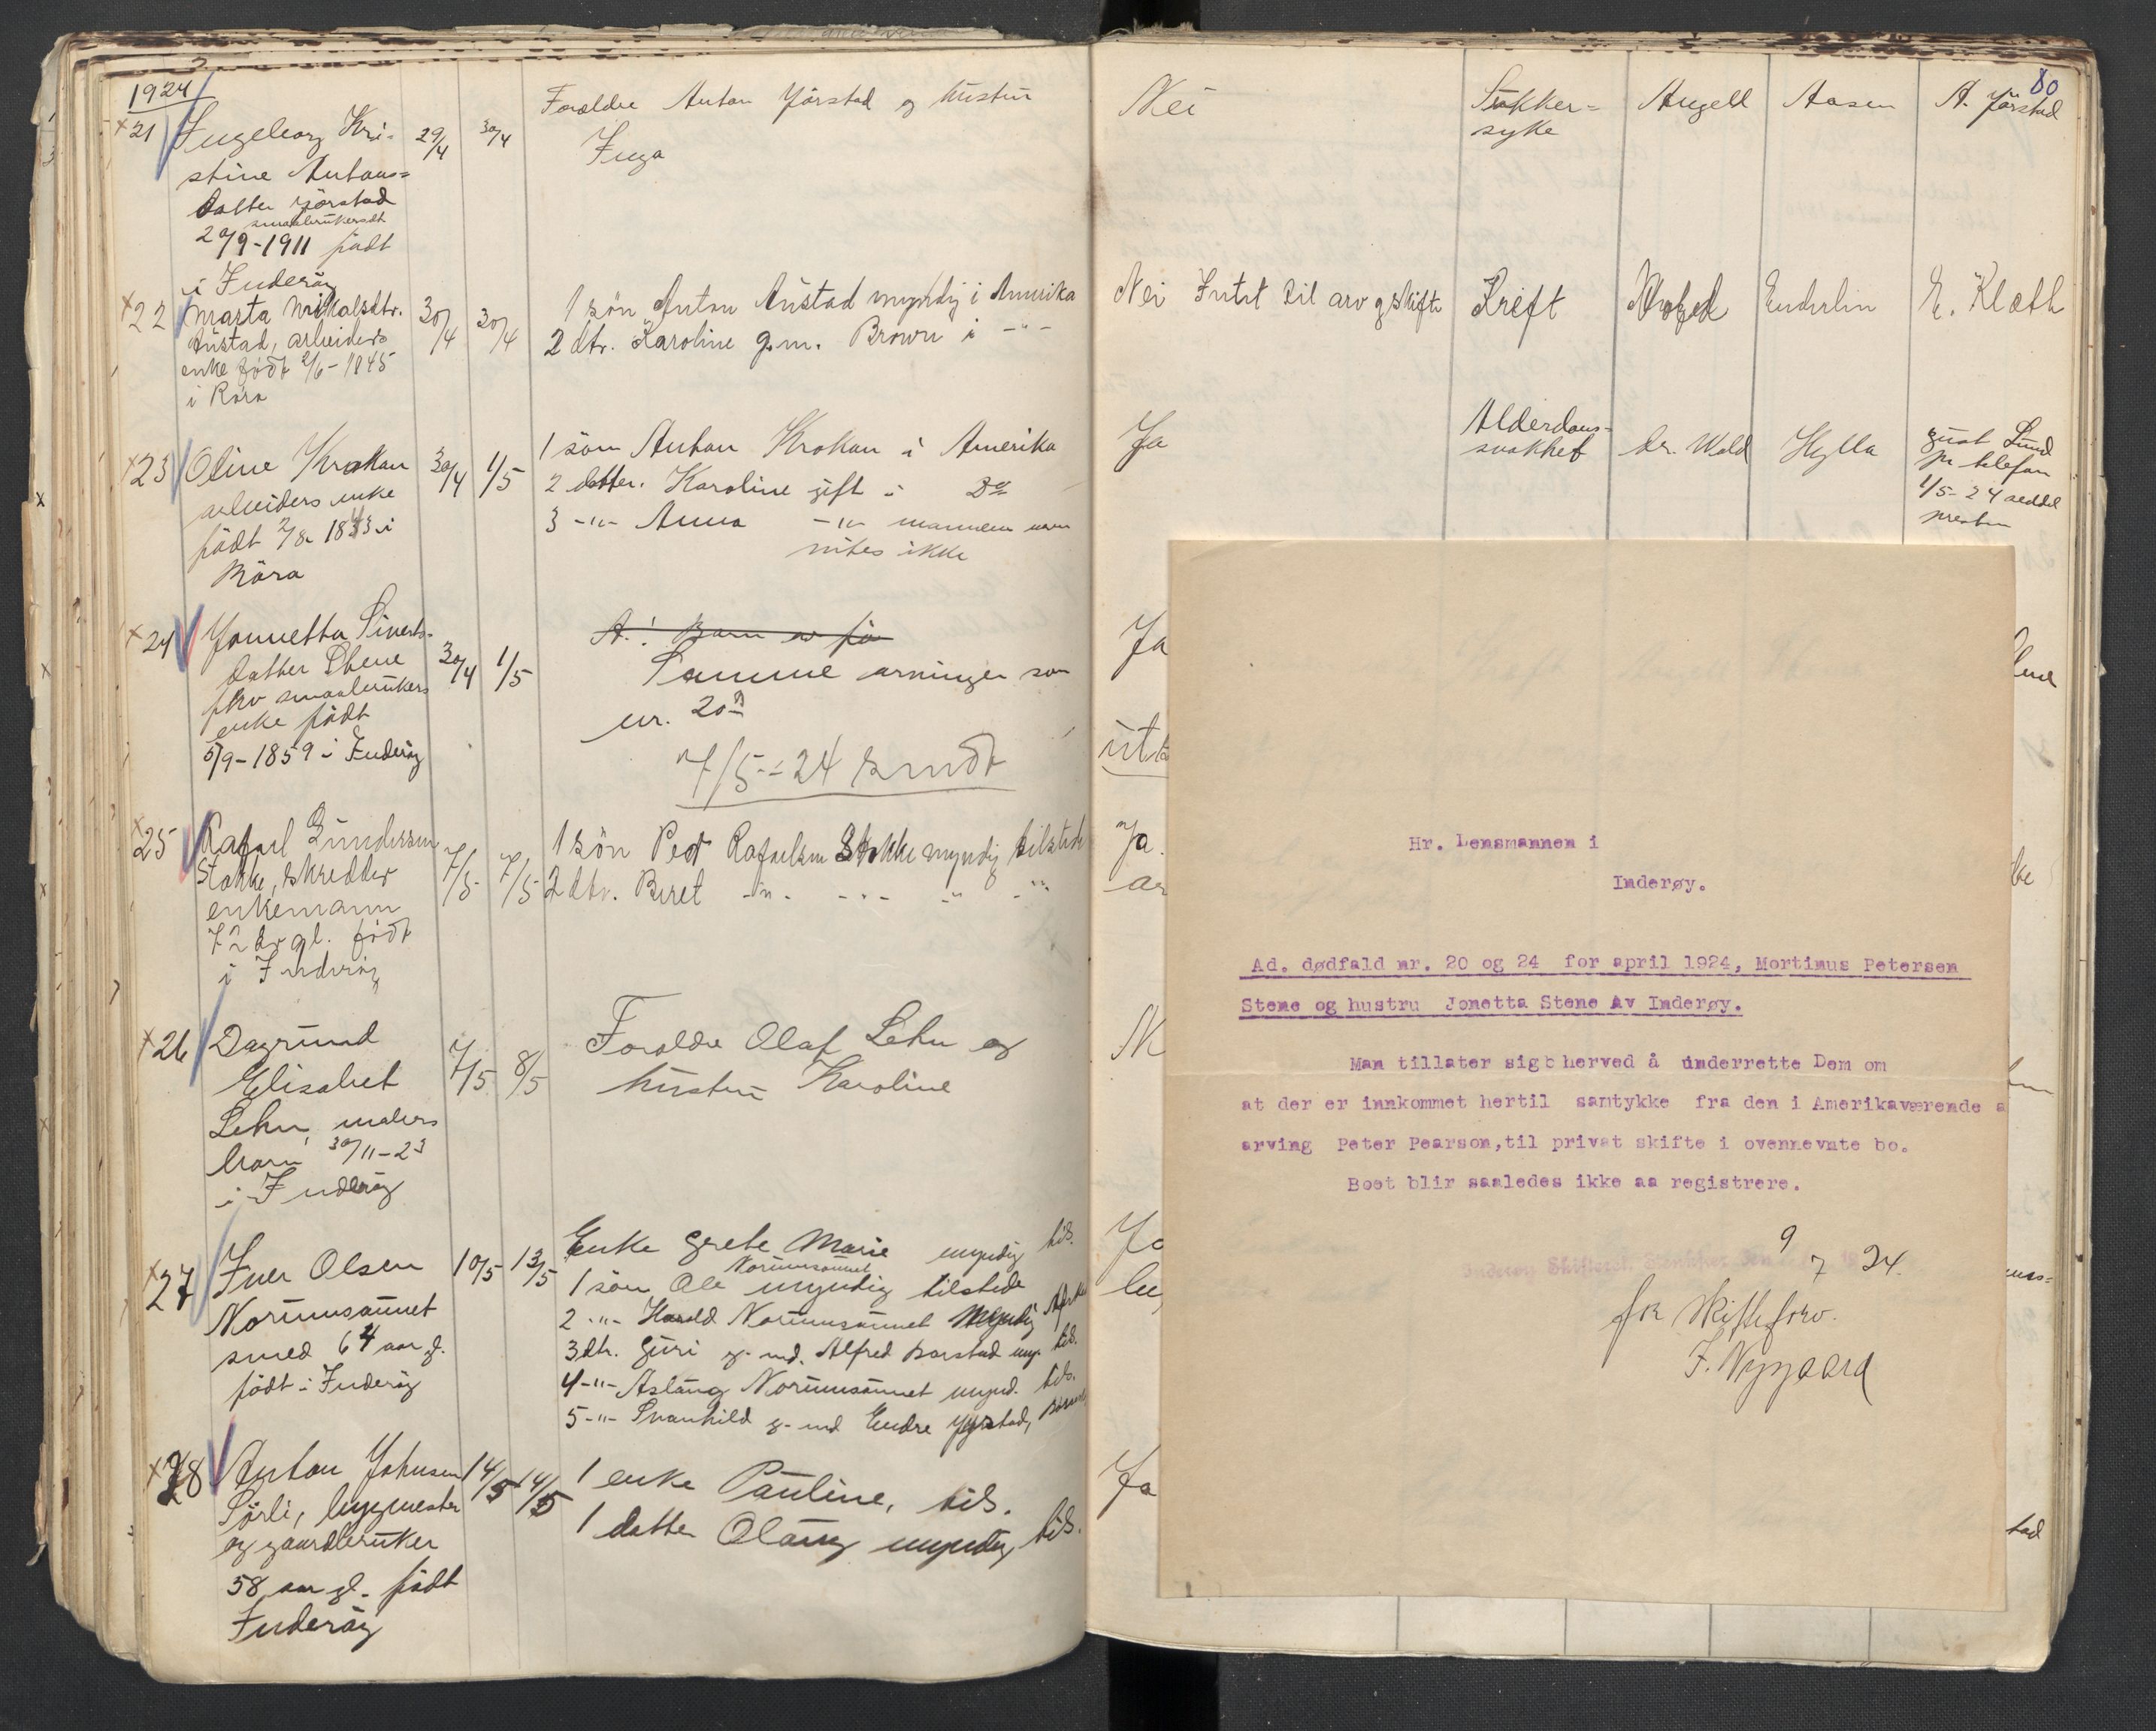 1924
80
21 Ingeborg Kri-
stine Antons-
datter Jörstad
smaabrukersdt
20/9-1911 født
i Inderöy
29/4 30/4
Foreldre Anton Jörstad og hustru
Inga
Nei
Sukker-
syke
Angell
Aasen
A. Jörstad
22 Marta Nikolsdtr.
Austad, arbeiders
enke født 2/6-1845
i Röra
30/4 30/4
1 søn Anton Austad myndig i Amerika
2 dtr. Karoline g.m. Brown i -"-
Nei Intet til arv og skifte
Kreft
Enderlin
E. Kløth
23 Oline Krokan
arbeiders enke
født 2/8 1833 i
Röra
30/4 1/5
1 sön Anton Krokan i Amerika
2 datter. Karoline gift i Do
3 -"- Anna -"- mannens navn
vites ikke
Ja
Alderdoms-
svakhet
Dr. Wold
Hylla
Gust Lund
pr telefon
1/5-24 seddel
presten
24 Jonnetta Siverts-
datter Stene
fhv smaabrukers
enke født
5/9-1859 i Inderöy
30/4 1/5
A.: Barn av fö
Samme arvinger som
nr. 20
7/5-24 sendt
Ja
25 Rafael Gundersen
Stokke, skredder
enkemann
72 år gl. født
i Inderøy
7/5 7/5
1 søn Peder Rafaelsen Stokke myndig tilstede
2 dtr. Beret -"- -"- -"-
Ja.
26 Dagrund
Elisabet
Lehn, malers
barn 30/11-23
i Inderöy
7/5 8/5
Foreldre Olaf Lehn og
hustru Karoline
27 Iver Olsen
Normunsaunet
smed 64 aar gl.
födt i Inderöy
10/5 13/5
Enke Grete Marie myndig tils.
Normunsaunet
1 sön Ole myndig tilstede
2 -"- Harald Normunsaunet Myndig
3 dtr. Guri g. md. Alfred Barstad myn. tils.
4 -"- Aslaug Normunsaunet mynd. tils.
5 -"- Svanhild g. md Endre
28 Anton Johnsen
Sörli, byggmester
og gaardbruker
58 aar gl. födt
Inderöy
14/5 14/5
1 enke Pauline, tils.
1 datter Olaug myndig tils.
Ja
Hr. Lensmannen i
Inderøy.
Ad. dødfald nr. 20 og 24 for april 1924, Mortinus Petersen
Stene og hustru Jonetta Stene Av Inderøy.
Man tillater sig herved å underrette Dem om
at der er innkommet hertil samtykke fra den i Amerikaværende a
arving Peter Pearson, til privat skifte i ovennevnte bo.
Boet blir saaledes ikke aa registrere.
9
7 24.
for skifteforv.
F. Nygaard